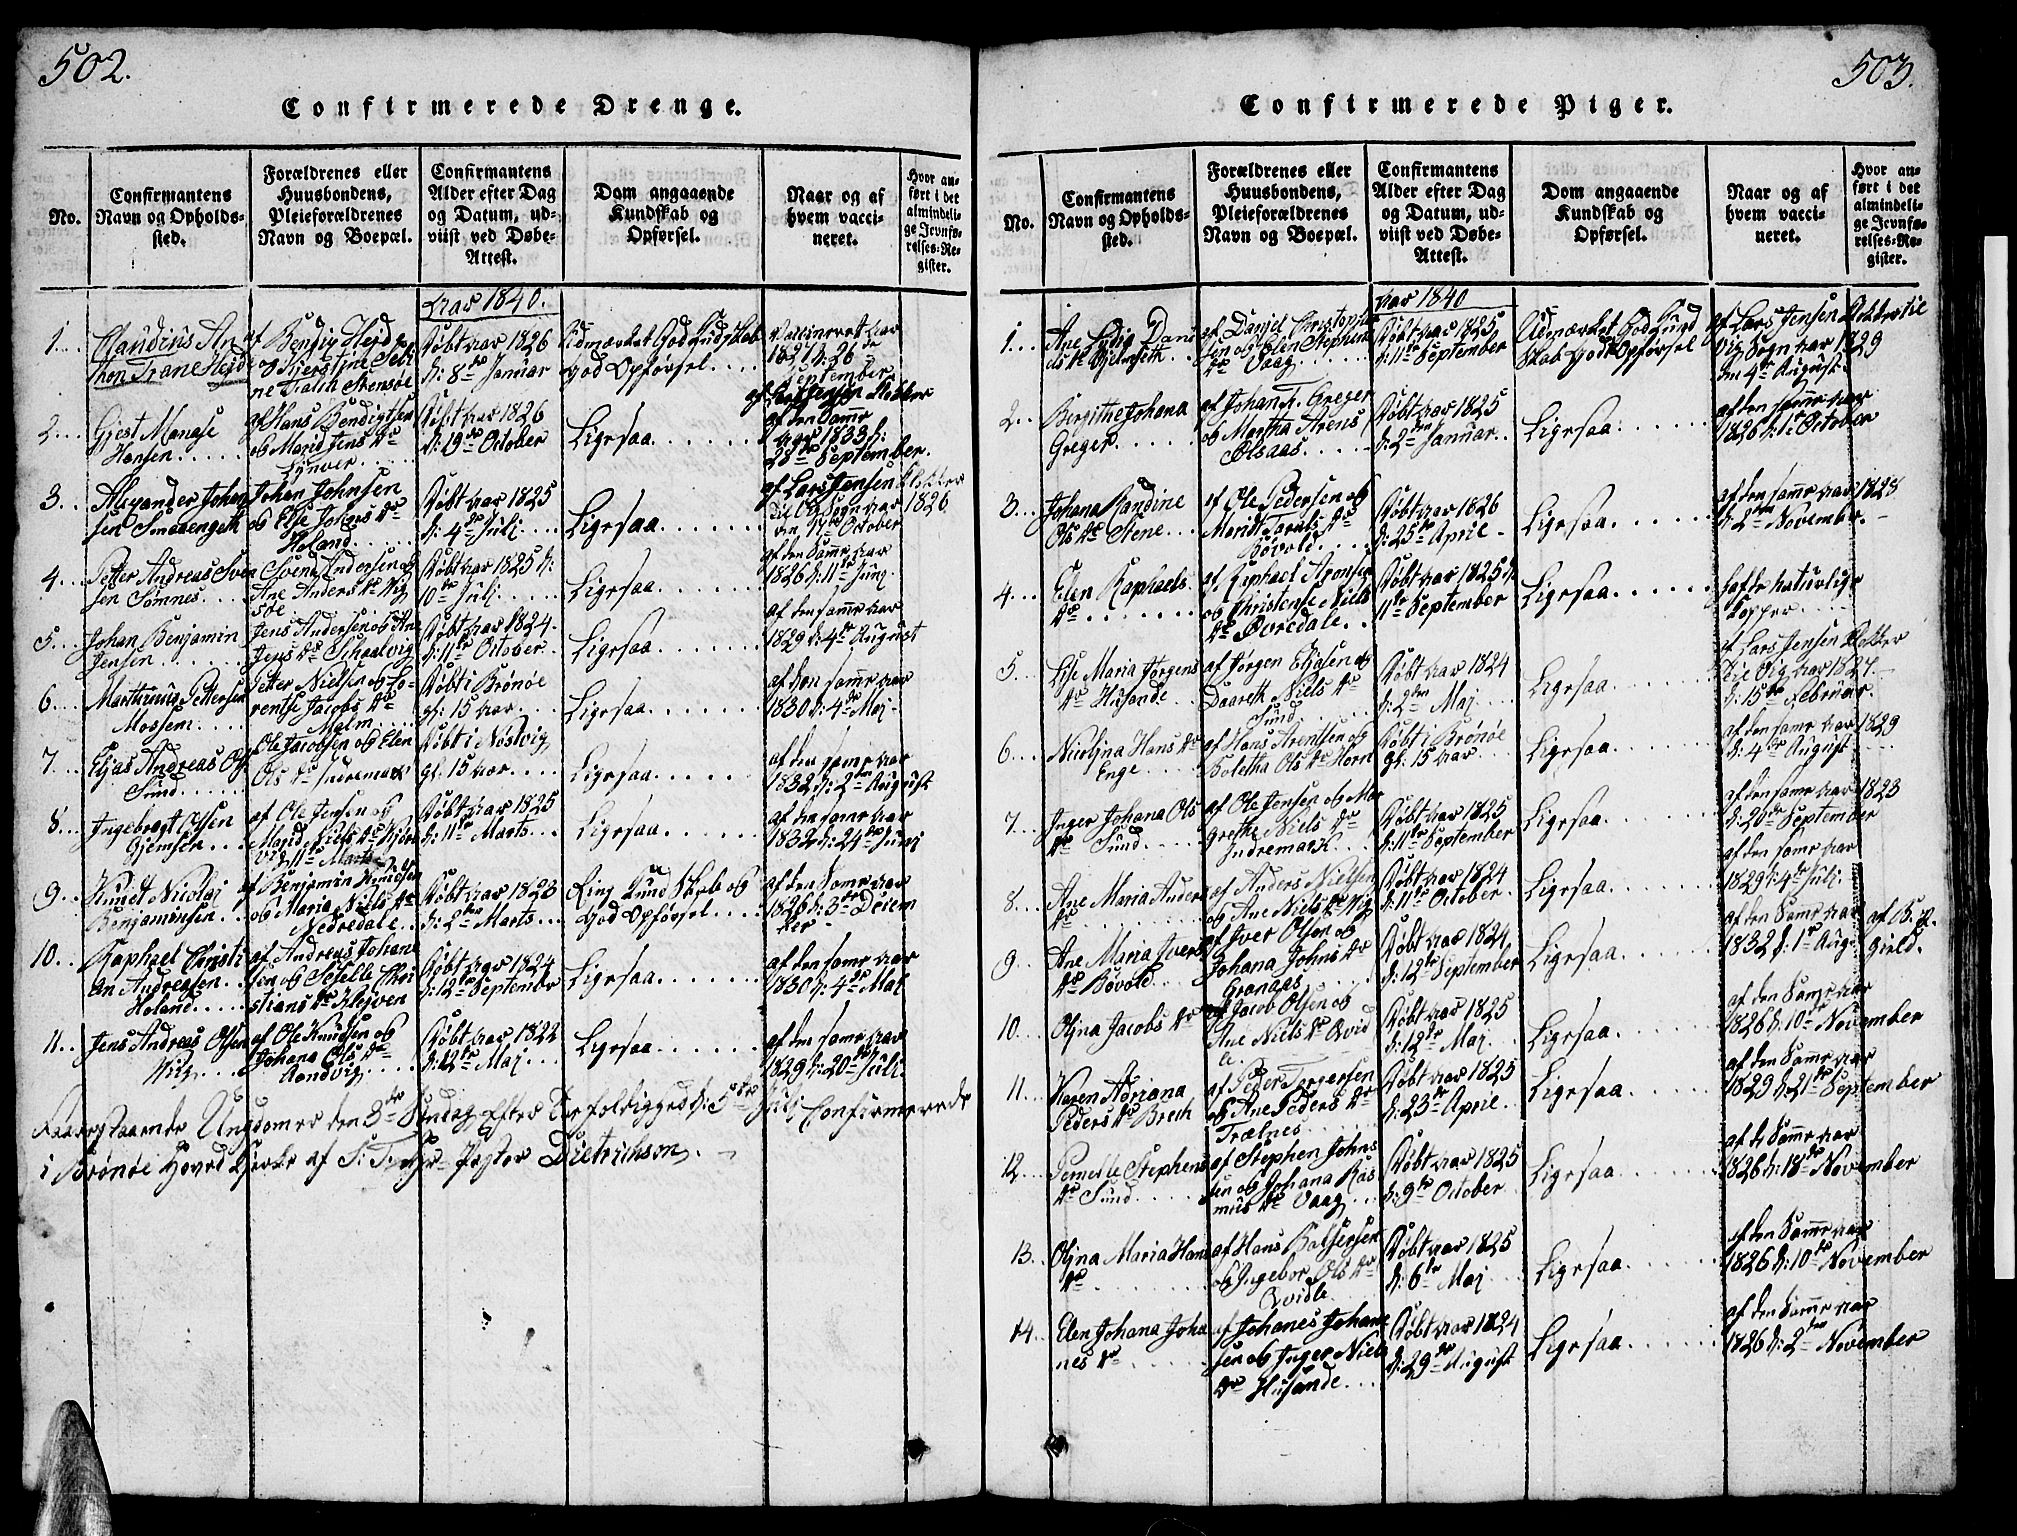 502.
Confirmerede Drenge.
No.
Confirmantens
Navn og Opholds-
sted.
Forældrenes eller
Huusbondens,
Pleieforældrenes
Navn og Boepæl.
Confirmantens
Alder efter Dag
og Datum, ud-
viist ved Døbe-
Attest.
Dom angaaende
Kundskab og
Opførsel.
Naar og af
hvem vacci-
neret.
Hvor an-
ført i det
almindeli-
ge Jevnfø-
relses-Re-
gister.
Aar 1840.
1
Claudius An
thon Trane Hejde
af Bendix Hejde
Døbt Aar 1826
d: 8de Januar
Udmærket God Kundskab
God Opførsel
Vaccineret Aar
1827 d: 26de
September
af Lars Jensen Klokker
2
Gjest Manase
Hansen
af Hans Bendigtsen
og Marid Jens Dr
Lynver
Døbt Aar 1826
d: 19de October
Ligesaa
af den Samme
Aar 1833 d:
28de September.
3
Alexander Johan
sen Smaaengesk
Johan Johnsen
og Else Johans Dr
Holand
Døbt Aar 1825
d: 4de Julj
Ligesaa
af Lars Jensen Klokker
1826
4
Petter Andreas Sven
sen Sømnes
Svend Andersen og
Ane Anders Dr Vig
søe
Døbt Aar 1825 d:
10de Julj
Ligesaa
af den Samme Aar
1826 d: 11te Junj
5
Johan Benjamin
Jensen
Jens Andersen og Ane
Jens Dr Schaalvig
Døbt Aar 1824
d: 11te October
Ligesaa
af den samme Aar
1829 d: 4de August
6
Marthinus Pettersen
Mossem
Petter Nielsen og Lo
rentse Jacobs Dr
Malm
Døbt i Brønøe
gl: 15 Aar
Ligesaa
af den samme Aar
1830 d: 4de Maj
7
Eljas Andreas Ols
Sund
Ole Jacobsen og Elen
Ols Dr Indremark
Døbt i Nøstvig
gl. 15 Aar
Ligesaa
af den samme Aar
1832 d: 2den August
8
Ingebrigt Olsen
Gjemsen
af Ole Jensen og
Marid Niels Dr
Døbt Aar 1825
d: 11te Marts
Ligesaa
af den samme Aar
1832 d: 24de Junj
9
Knudt Nicolaj
Benjaminsen
af Benjamin Knudsen
og Maria Niels Dr
Nedredale
Døbt Aar 1823
d: 2den Marts
Ring Kundskab og
God Opførsel
af den Samme Aar
1826 d: 3de Decem
ber
10
Raphael Christi
an Andreasen
Holand
af Andreas Johane
sen og Chri
stians Dr Klejven
Døbt Aar 1824
d: 12te September
Ligesaa
af den samme Aar
1830 d: 4de Maj
11
Jens Andreas Olsen
af Ole Knudsen og
Johana Ols Dr
Aandvig
Døbt Aar 1822
d: 12te Maj
Ligesaa
af den samme Aar
1829 d: 20de Julj
Ungdommer den 3de Søndag Efter d: 5te Julj Confirmerede
i Brønøe Hoved Kjerke af Pastor Dietrichson.
503.
Confirmerede Piger.
No.
Confirmantens
Navn og Opholds-
sted.
Forældrenes eller
Huusbondens,
Pleieforældrenes
Navn og Boepæl.
Confirmantens
Alder efter Dag
og Datum, ud-
viist ved Døbe-
Attest.
Dom angaaende
Kundskab og
Opførsel.
Naar og af
hvem vacci-
neret.
Hvor an-
ført i det
almindeli-
ge Jevnfø-
relses-Re-
gister.
Aar 1840
1
Ane Lydig Dani
els Dr
af Daniel Christophe
sen og Elen Stephens
Dr Vaag
Døbt Aar 1825
d: 11te September
Udmærket God Kund
skab Godt Opførsel
af Lars Jensen Klokker til
Vig Sogn Aar 1829
den 4de August
2
Birgithe Johana
Greger
af Johan T. Greger
og Martha Arens
Ølsaas
Døbt Aar 1825
d: 2den Januar
Ligesaa
af den samme Aar
1826 d: 1te October
3
Johana Randine
Ols Dr Stene
af Ole Pedersen og
Bøvold
Døbt Aar 1826
d: 25de April
Ligesaa
af den samme Aar 1828
d: 2den November
4
Elen Raphaels
Dr
af Raphael Aronsen
og Christense Niels
Dr Øvredale
Døbt Aar 1825 d:
11te September
Ligesaa
hafde naturlige
Kopper
5
Lise Maria Jørgens
Dr Husande
af Jørgen Eljasen og
Daareth Niels Dr
Sund
Døbt Aar 1824
d: 2den Maj
Ligesaa
af Lars Jensen Klokker
Vig Aar 1827
d: 15de Februar
6
Nicoljna Hans Dr
Enge
af Hans Arentsen og
Boletha Ols Dr Horn
Døbt i Brønøe
gl: 15 Aar
Ligesaa
af den samme Aar 1829
d: 4de August
7
Inger Johana Ols
Dr Sund
af Ole Jensen og Mar
grethe Niels Dr
Indremark
Døbt Aar 1825
d: 11te September
Ligesaa
af den samme Aar 1823
d: 20de September
8
Ane Maria Anders
Dr
af Anders Nielsen
og Ane Niels Dr Vig
Døbt Aar 1824
d: 11te October
Ligesaa
af den samme Aar
1829 d: 4de Julj
9
Ane Maria Ivers
Dr Bøvold
af Iver Olsen og
Johana Johns Dr
Granaas
Døbt Aar 1824
d: 12te September
Ligesaa
af den Samme Aar
1832 d: 1te Aug:
10
Oljna Jacobs Dr
af Jacob Olsen og
Ane Niels Dr Qvid
le
Døbt Aar 1825
d: 12te Maj
Ligesaa
af den Samme Aar
1826 d: 10de November
11
Karen Adriana
Peders Dr Brech
af Peder Torgersen
og Ane Peders Dr
Trælnes
Døbt Aar 1825
d: 23de April
Ligesaa
af den Samme Aar
1829 d: 21de September
12
Pernelle Stephens
Dr Sund
af Stephen Johns
sen og Johana Ras
mus Dr Vaag
Døbt Aar 1825
d: 9de October
Ligesaa
af d: Samme Aar
1826 d: 18de November
13
Oljna Maria Hans
Dr
af Hans Baltsersen
og Ingebor Ols Dr
Qvidle
Døbt Aar 1825
d: 6te Maj
Ligesaa
af den Samme Aar
1826 d: 10de November
14
Elen Johana Joha
nes Dr
af Johanes Johane
sen og Inger Niels
Dr Husande
Døbt Aar 1824
d: 29de August
Ligesaa
af den Samme Aar
1826 d: 2den November